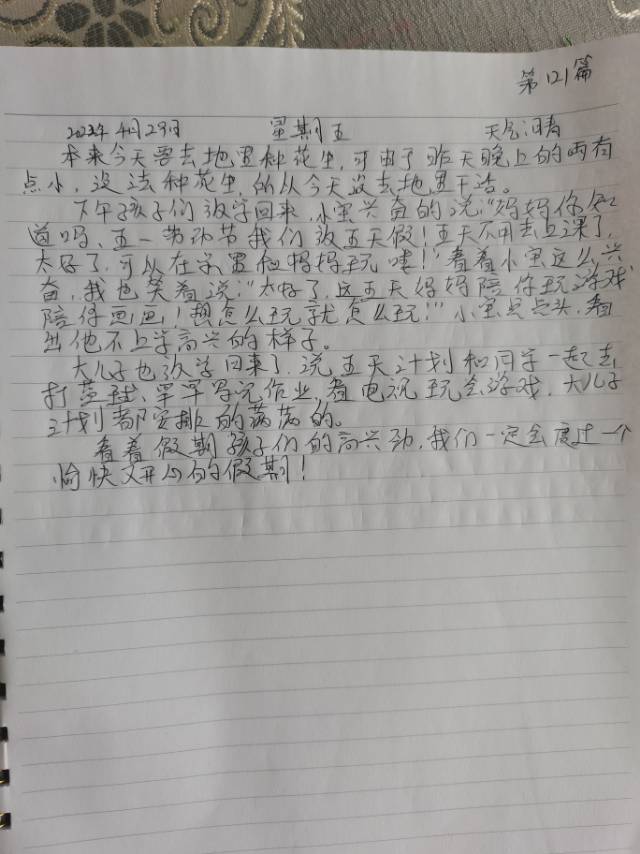 第121篇
2022年4月29日 星期五 天气晴
本来今天要去地里种花生,可由于昨天晚上的雨有
点小,没法种花生,所以今天没去地里干活。
下午孩子们放学回来,小宝兴奋的说:“妈妈你知
道吗、五一劳动节我们放五天假!五天不用去上课了,
太好了,可以在家里和妈妈玩喽!”看着小宝这么兴
奋,我也笑着说:“太好了,这五天妈妈陪你玩游戏,
陪你画画!想怎么玩就怎么玩!”小宝点点头,看
出他不上学高兴的样子。
大儿子也放学回来了,说五天计划和同学一起去
打篮球、早早写完作业,看电视玩会游戏,大儿子
计划都安排的满满的。
看着假期孩子们的高兴劲,我们一定会度过一个
愉快又开心的假期!